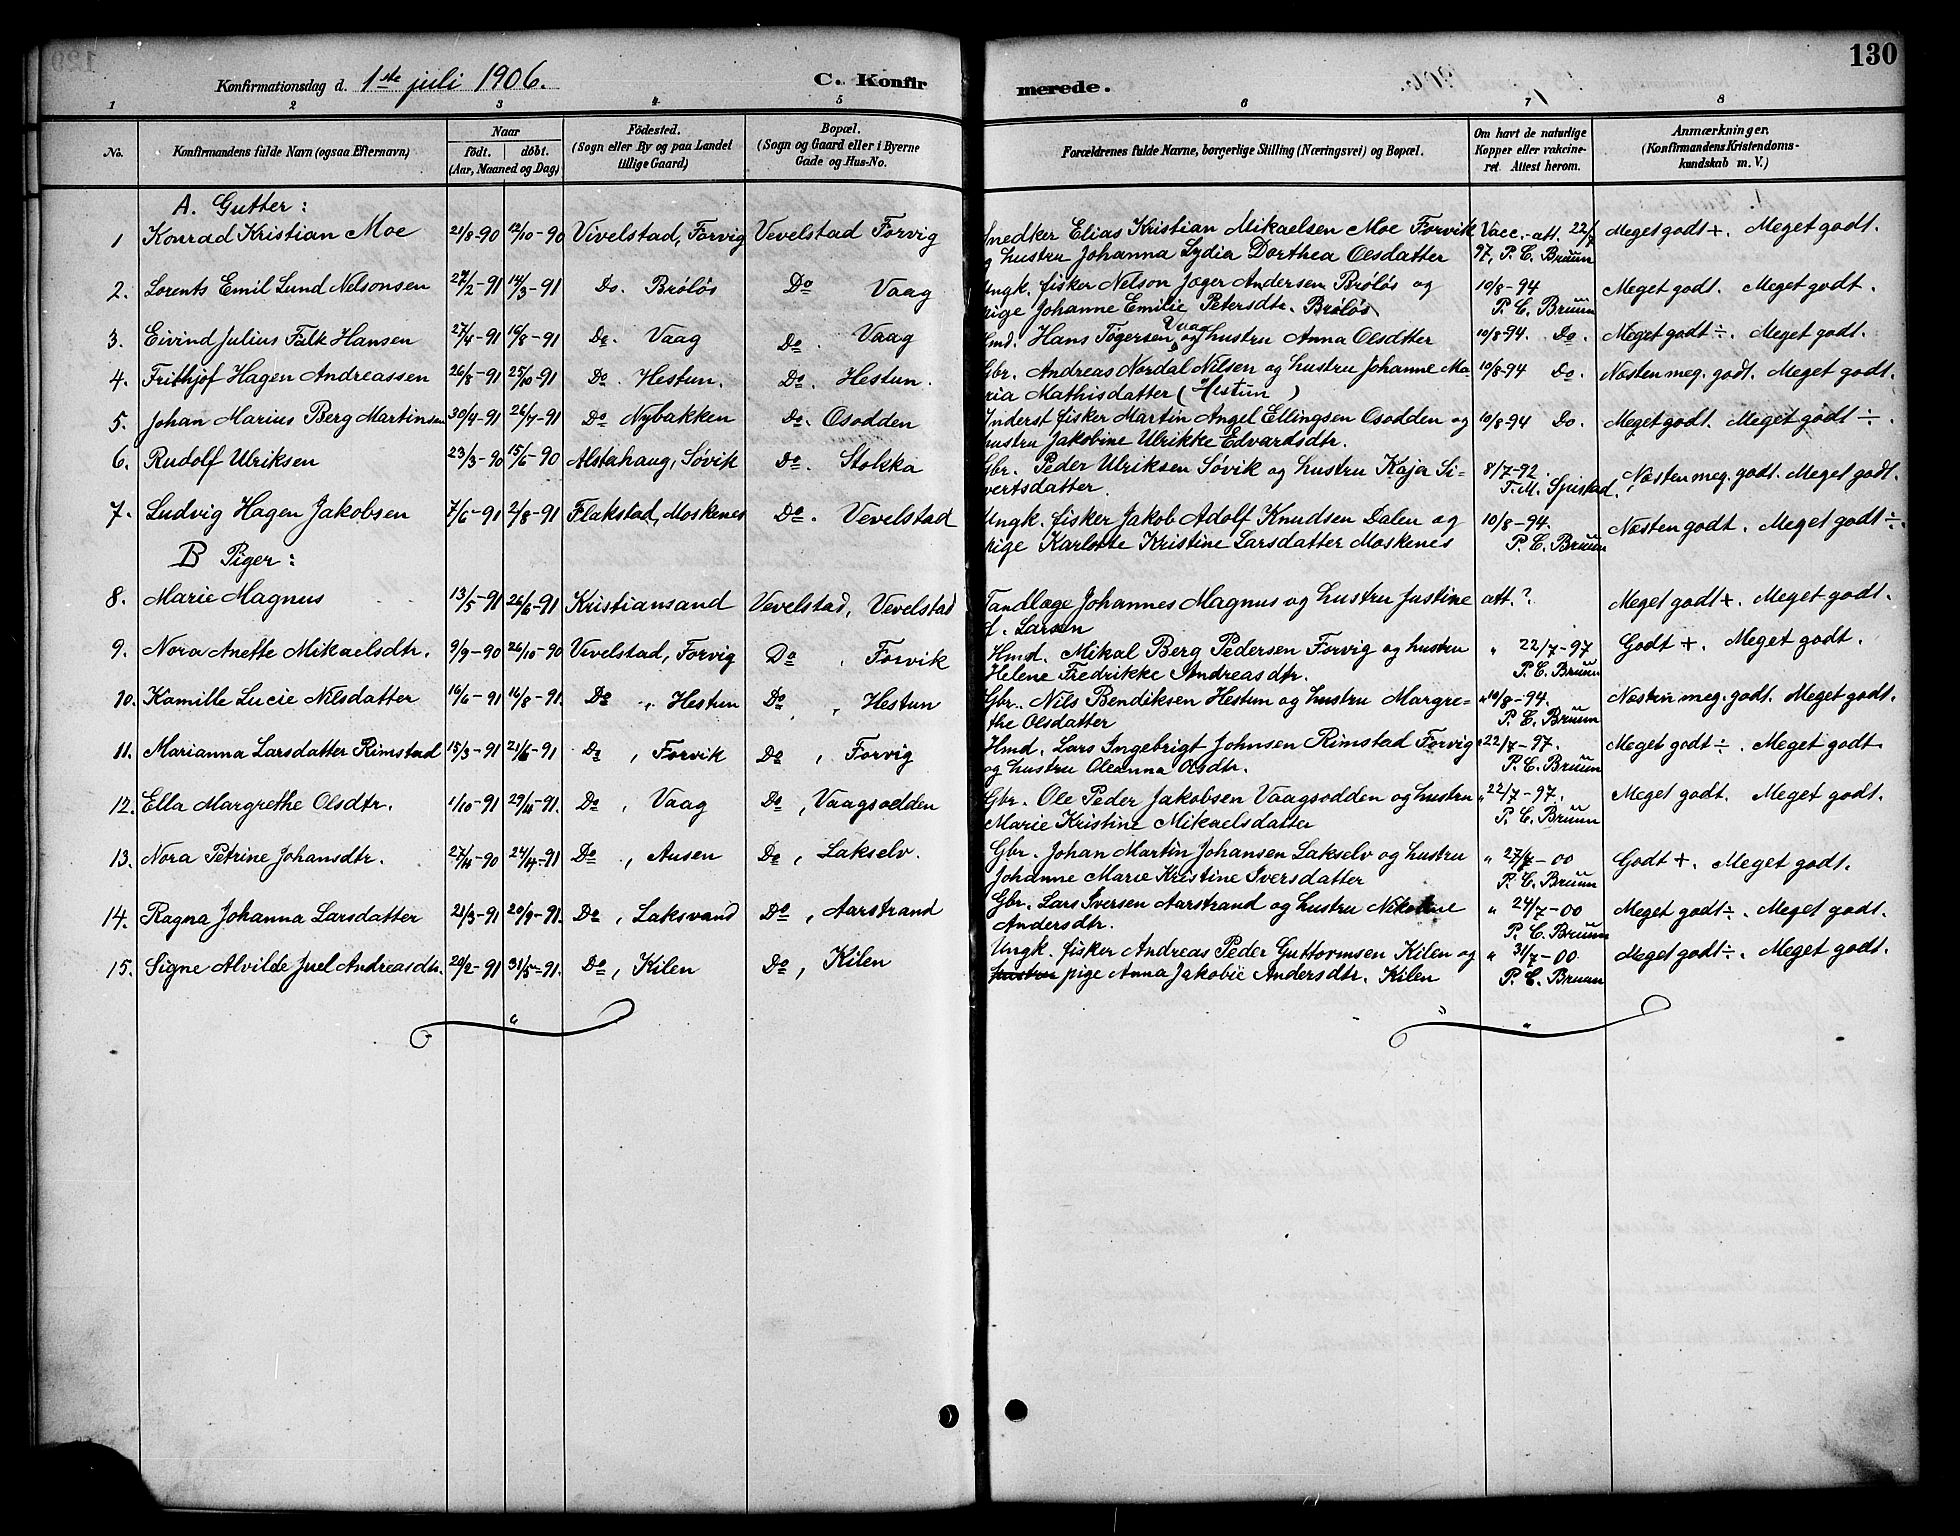 130
Konfirmationsdag d. 1ste juli 1906. C. Konfirmerede.
1 2 3 4 5 6 7 8
No. Konfirmandens fulde Navn (ogsaa Efternavn) Naar født. døbt. (Aar, Maaned og Dag) Fødested. (Sogn eller By og paa Landet tillige Gaard) Bopæl. (Sogn og Gaard eller i Byerne Gade og Hus-No. Forældrenes fulde Navne, borgerlige Stilling (Næringsvei) og Bopæl. Om havt de naturlige Kopper eller vakcineret. Attest herom. Anmærkninger. (Konfirmandens Kristendomskundskab m. V.)
A. Gutter:
1 Konrad Kristian Moe 21/8-90 12/10-90 Vivelstad, Forvig Vevelstad Forvig Snedker Elias Kristian Mikaelsen Moe Forvik Vacc. att. 22/7 Meget godt +. Meget godt.
og hustru Johanna Lydia Dorthea Olsdatter 97, P. C. Bruun
2. Lorents Emil Lund Nelsonsen /2-91 14/3-91 Do. Bröløs Do Vaag Ungk. fisker Nelson Jæger Andersen Bröløs og 10/8-94 Meget godt. Meget godt.
pige Johanne Emilie Petersdtr. Bröløs P. C. Bruun
3. Eivind Julius Falk Hansen 27/4-91 16/8-91 Do. Vaag Do. Vaag Hmd. Hans Tögersen Vaag og hustru Anna Olsdtter 10/8-94. Do. Meget godt ÷. Meget godt.
4. Frithjof Hagen Andreassen 26/8-91 25/10-91 Do. Hestun. Do. Hestun. Gbr. Andreas Nordal Nilsen og hustru Johanne Ma- 10/8-94 Do. Næsten meg. godt. Meget godt.
ria Mathisdatter (Hestun)
5. Johan Marius Berg Martinsen 30/4-91 26/7-91 Do Nybakken Do. Osodden Inderst fisker Martin Angel Ellingsen Osodden og 10/8-94 Do. Meget godt. Meget godt ÷.
hustru Jakobine Ulrikke Edvardsdtr.
6. Rudolf Ulriksen 23/3-90 15/6-90 Alstahaug, Søvik Do. Stokka Gbr. Peder Ulriksen Søvik og hustru Kaja Si- 8/7-92. Næsten meg. godt. Meget godt.
vertsdatter. T. M. Spistad.
7. Ludvig Hagen Jakobsen 7/6-91 2/8-91 Flakstad, Moskenes Do. Vevelstad Ungk. fisker Jakob Adolf Knudsen Dalen og 10/8-94. Næsten godt. Meget godt ÷.
pige Karlotte Kristine Larsdatter Moskenes P. C. Bruun
B Piger:
8. Marie Magnus 13/5-91 26/6-91 Kristiansand Vevelstad, Vevelstad Tandlæge Johannes Magnus og hustru Justine att. ? Meget godt +. Meget godt.
f. Larsen
9. Nora Anette Mikaelsdtr. 9/9-90 26/10-90 Vevelstad, Forvig Do , Forvik Hmd. Mikal Berg Pedersen Forvig og hustru " 22/7-97 Godt +. Meget godt.
Helene Fredrikke Andreasdtr. P. C. Bruun
10. Kamille Lucie Nilsdatter 16/6-91 16/8-91. Do , Hestun Do , Hestun Gbr. Nils Bendiksen Hestun og hustru Margre- " 10/8-94. Næsten meg. godt. Meget godt.
the Olsdatter P. C. Bruun
11. Marianna Larsdatter Rimstad 15/3-91 21/6-91 Do , Forvik Do , Forvig Hmd. Lars Ingebrigt Johnsen Rimstad Forvig " 22/7-97. Meget godt ÷. Meget godt.
og hustru Oleanna Olsdtr. P. C. Bruun
12. Ella Margrethe Olsdtr. 1/10-91 29/11-91. Do , Vaag Do , Vaagsodden Gbr. Ole Peder Jakobsen Vaagsodden og hustru " 22/7-97. Meget godt. Meget godt.
Marie Kristine Mikaelsdatter P. C. Bruun
13. Nora Petrine Johansdtr. 27/11-90 24/4-91 Do , Ausen Do , Lakselv. Gbr. Johan Martin Johansen Lakselv og hustru " 27/7-00 Godt +. Meget godt.
Johanne Marie Kristine Iversdatter P. C. Bruun
14. Ragna Johanna Larsdatter 21/3-91 20/9-91. Do , Laksvand Do , Aarstrand Gbr. Lars Iversen Aarstrand og hustru Nikoline " 24/7-00 Meget godt ÷. Meget godt.
Andersdtr. P. C. Bruun
15. Signe Alvilde Juel Andreasdtr. /2-91 31/5-91. Do , Kilen Do , Kilen Ungk. fisker Andreas Peder Guttormsen Kilen og " 31/7-00 Meget godt ÷. Meget godt.
hustru pige Anna Jakobie Andersdtr. Kilen P. C. Bruun